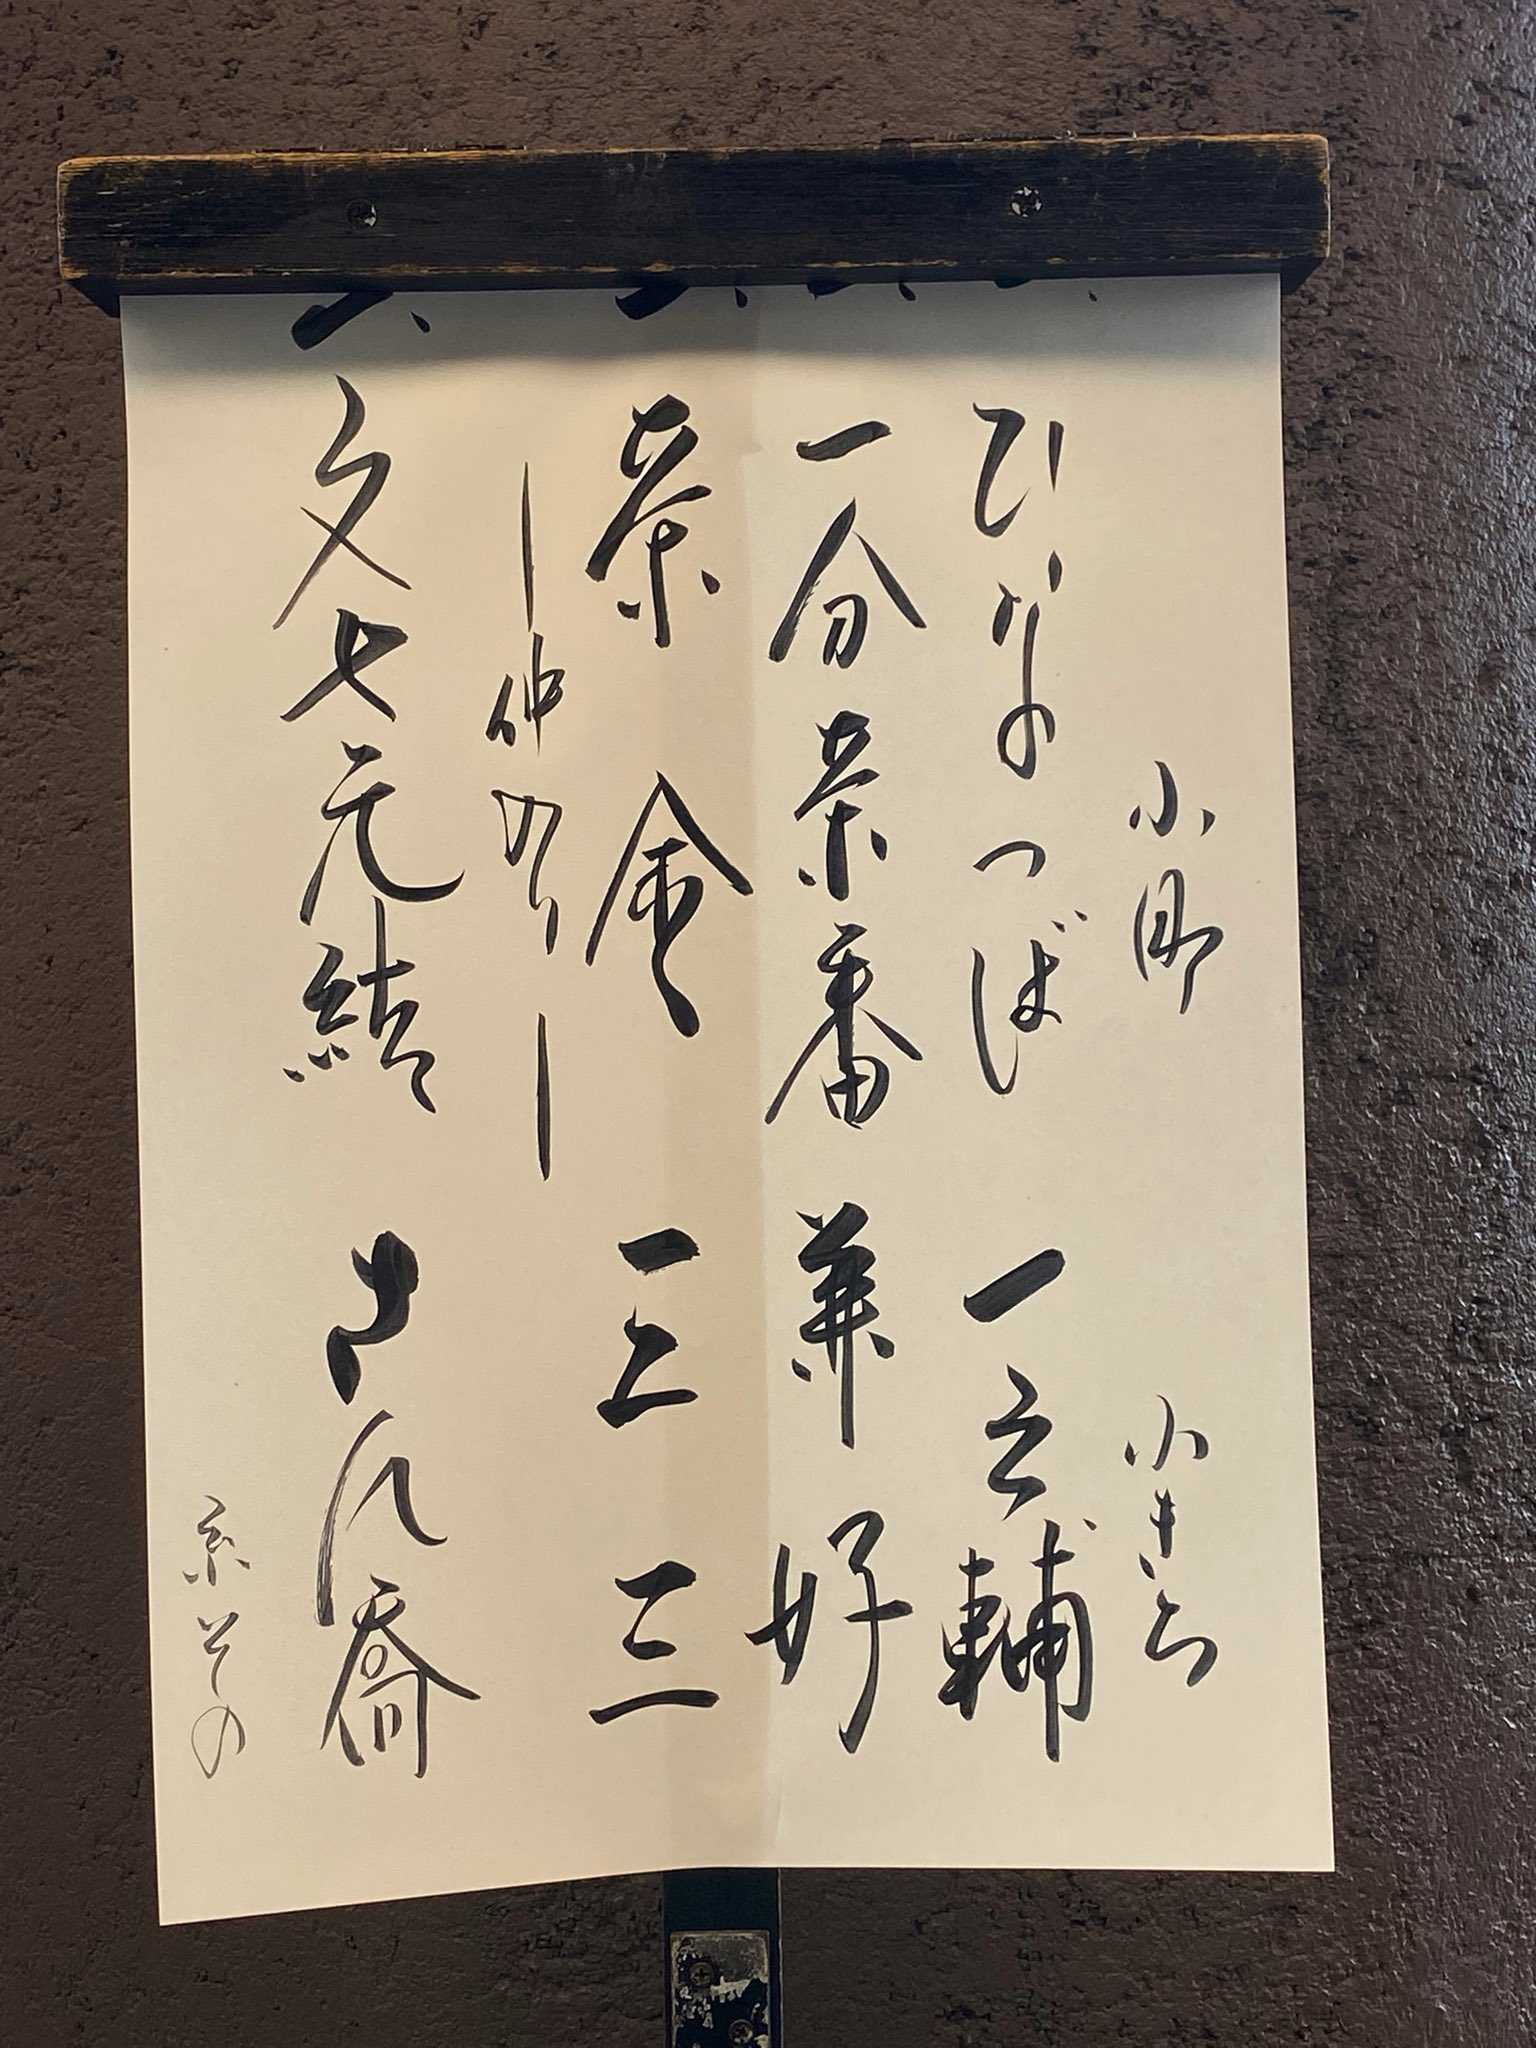 小町 小きち
ひなつば 一之輔
一分茶番 兼好
茶金 三三
｜仲入り｜
文七元結 さん喬
糸その